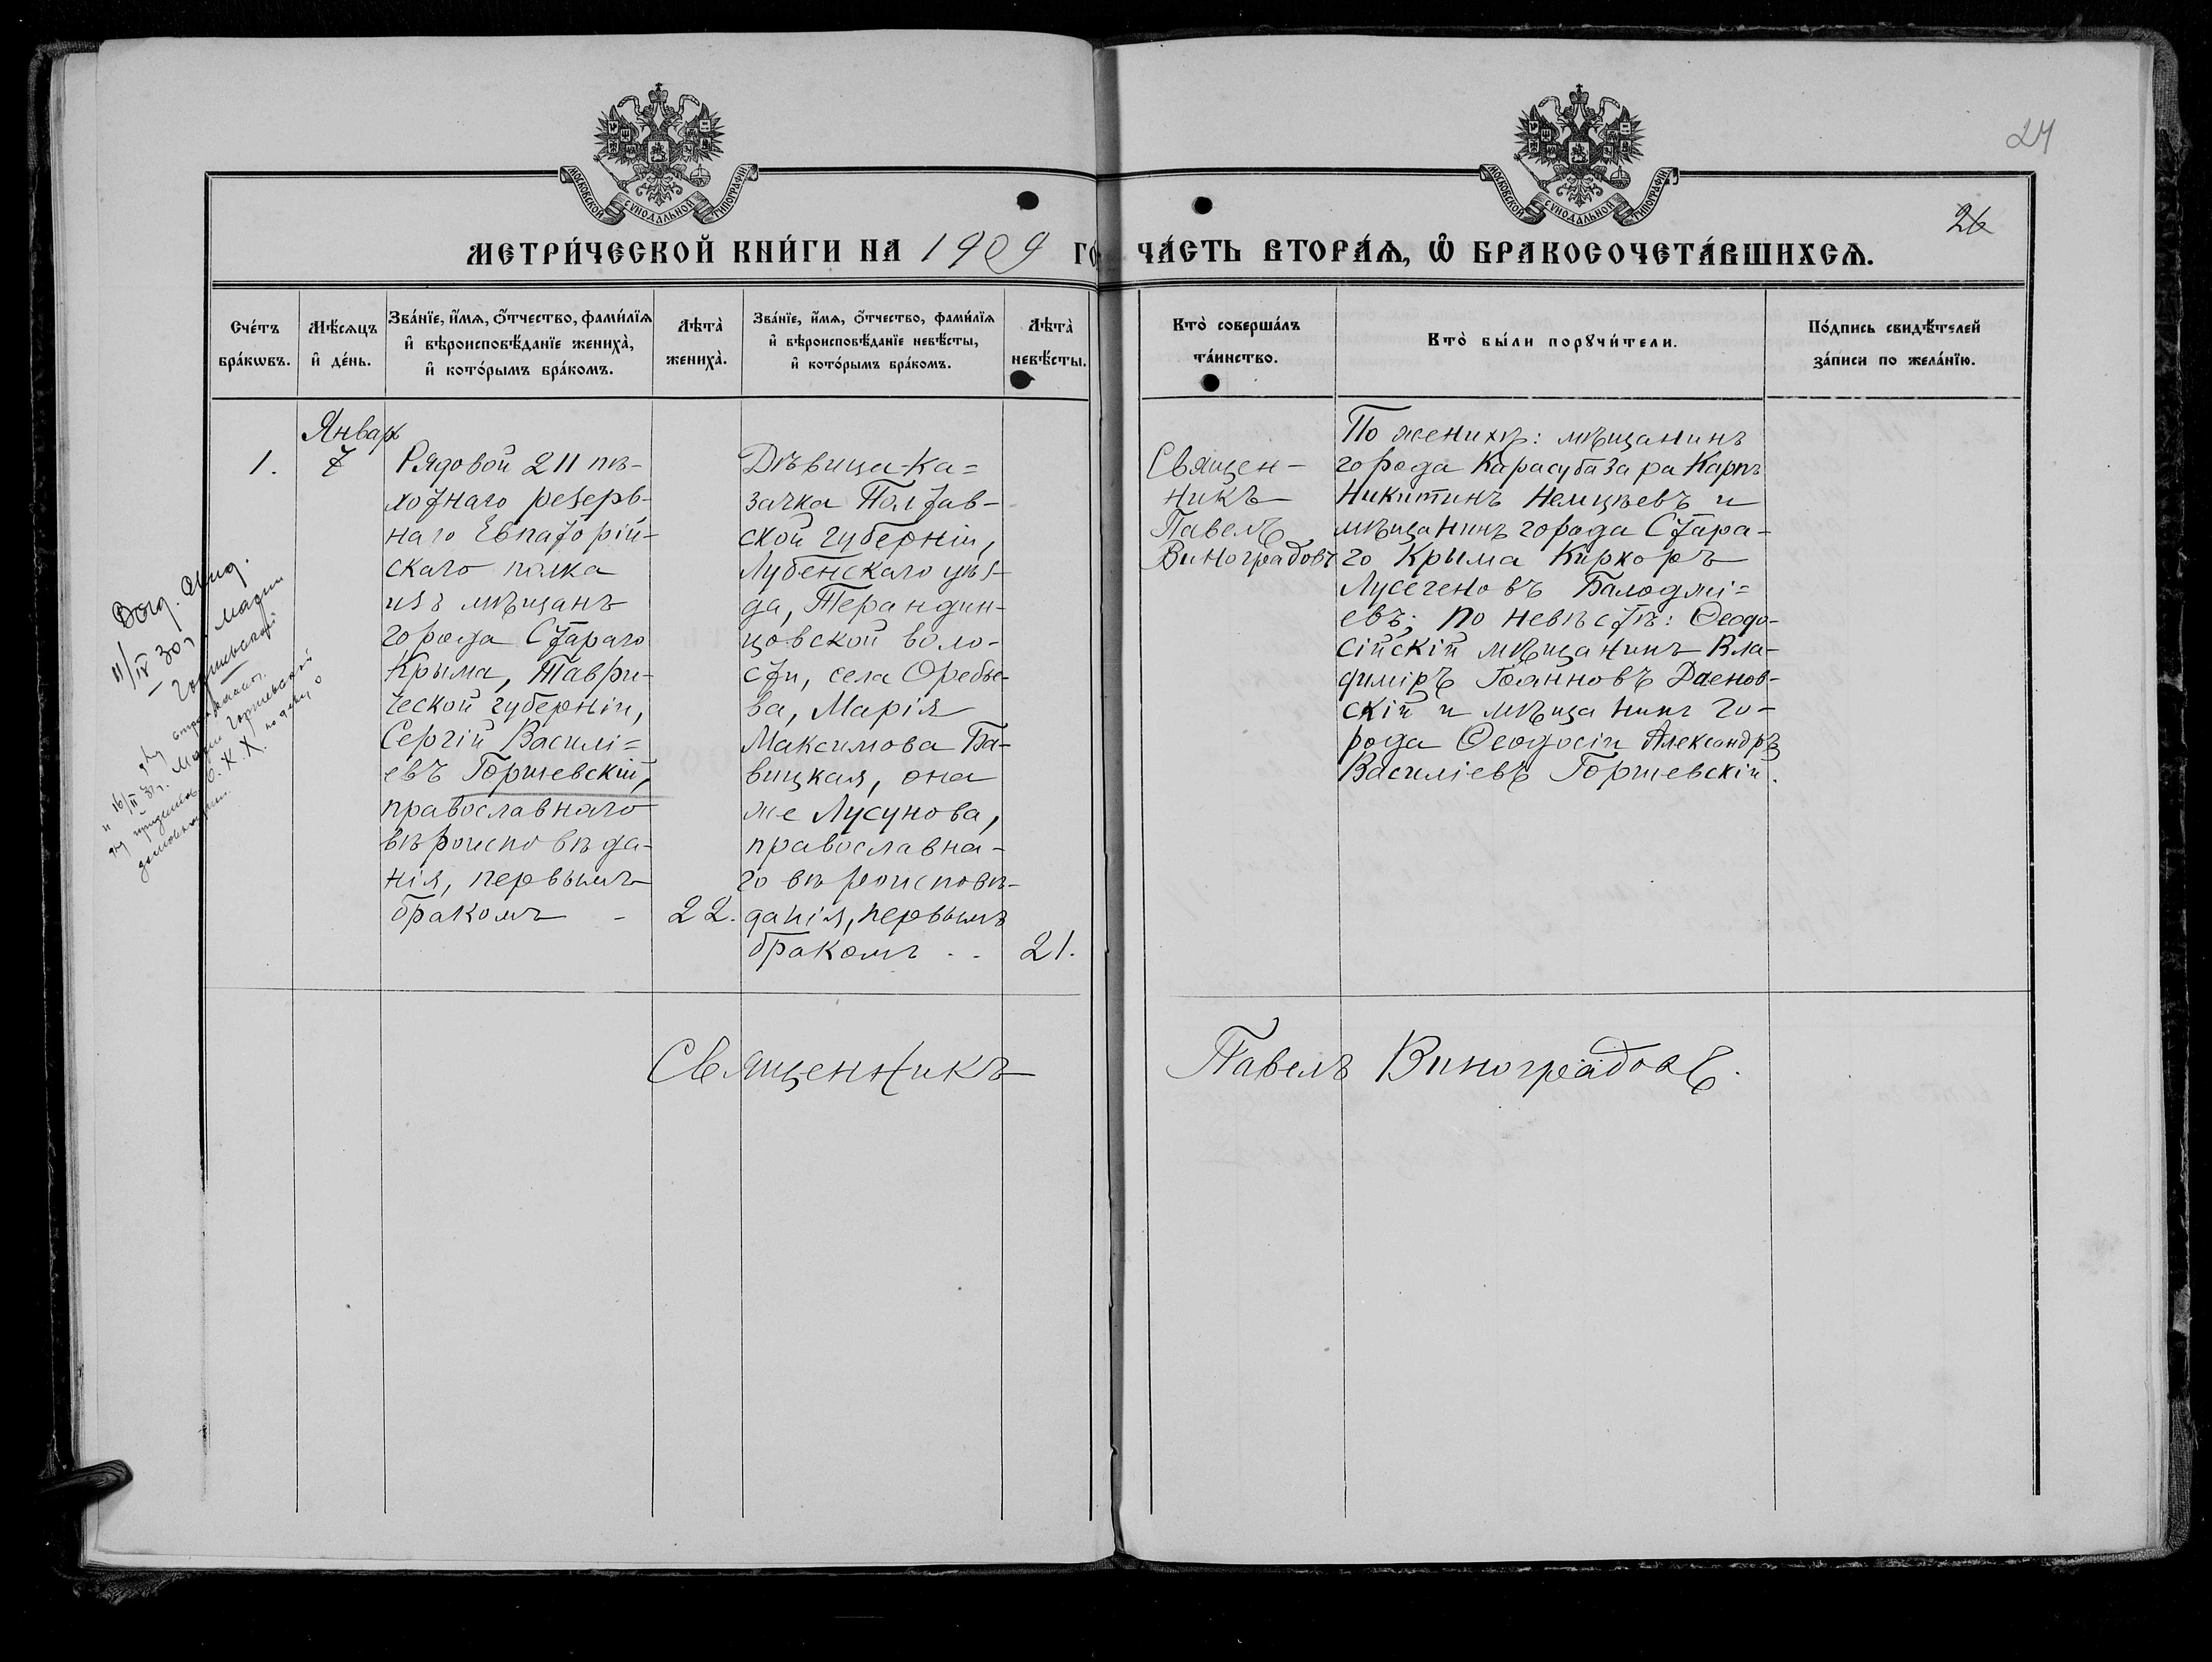 24
26
МОСКОВСКОЙ СѴНОДАЛЬНОЙ ТИПОГРАФІИ
МОСКОВСКОЙ СѴНОДАЛЬНОЙ ТИПОГРАФІИ
МЕТРИ́ЧЕСКОЙ КНИ́ГИ НА 1909 ГО
ЧА́СТЬ ВТОРА́Ѧ, Ѡ҆ БРАКОСОЧЕТА́ВШИХСѦ.
Сче́тъ
бра́кѡвъ.
Мѣ́сѧцъ
и҆ де́нь.
Зва́нїе, и҆́мѧ, ѻ҆́тчество, фами́лїѧ
и҆ вѣроисповѣ́данїе жениха̀,
и҆ кото́рымъ бра́комъ.
Лѣ́та̀
жениха̀.
Зва́нїе, и҆́мѧ, ѻ҆́тчество, фами́лїѧ
и҆ вѣроисповѣ́данїе невѣ́сты,
и҆ кото́рымъ бра́комъ.
Лѣ́та̀
невѣ́сты.
Кто̀ соверша́лъ
та́инство.
Кто̀ бы́ли порꙋчи́тели.
По́дпись свидѣ́телей
за́писи по жела́нїю.
1.
Январ
7
Рядовой 211 пѣ-
хотнаго резерв-
наго Евпаторій-
скаго полка
изъ мѣщанъ
города Стараго
Крыма, Таври-
ческой губерніи,
Сергій Василі=
евъ Горшевскій,
православнаго
вѣроисповѣда-
нія, первымъ
бракомъ -
22.
Дѣвица-ка=
зачка Полтав-
ской губерніи,
Лубенскаго уѣз-
да, Терандин-
цовской воло-
сти, села Оребье-
ва, Марія
Максимова Ба-
вицкая, она
же Лусунова,
православна-
го вѣроисповѣ-
данія, первымъ
бракомъ . .
21.
Священ-
никъ
Павелъ
Виноградовъ
По женихѣ: мѣщанинъ
города Карасубазара Карпъ
Никитинъ Немцѣевъ и
мѣщанинъ города Стара-
го Крыма Киркоръ
Лусегеновъ Балоджі=
евъ; по невѣстѣ: Ѳеодо-
сійскій мѣщанинъ Вла-
диміръ Іоанновъ Даенов-
скій и мѣщанинъ го-
рода Ѳеодосіи Александръ
Василіевъ Горшевскій.
Священникъ Павелъ Виноградовъ.
11/IV 30 г. Марии
Горшевской
16/II 31 г. Марии Горшевской